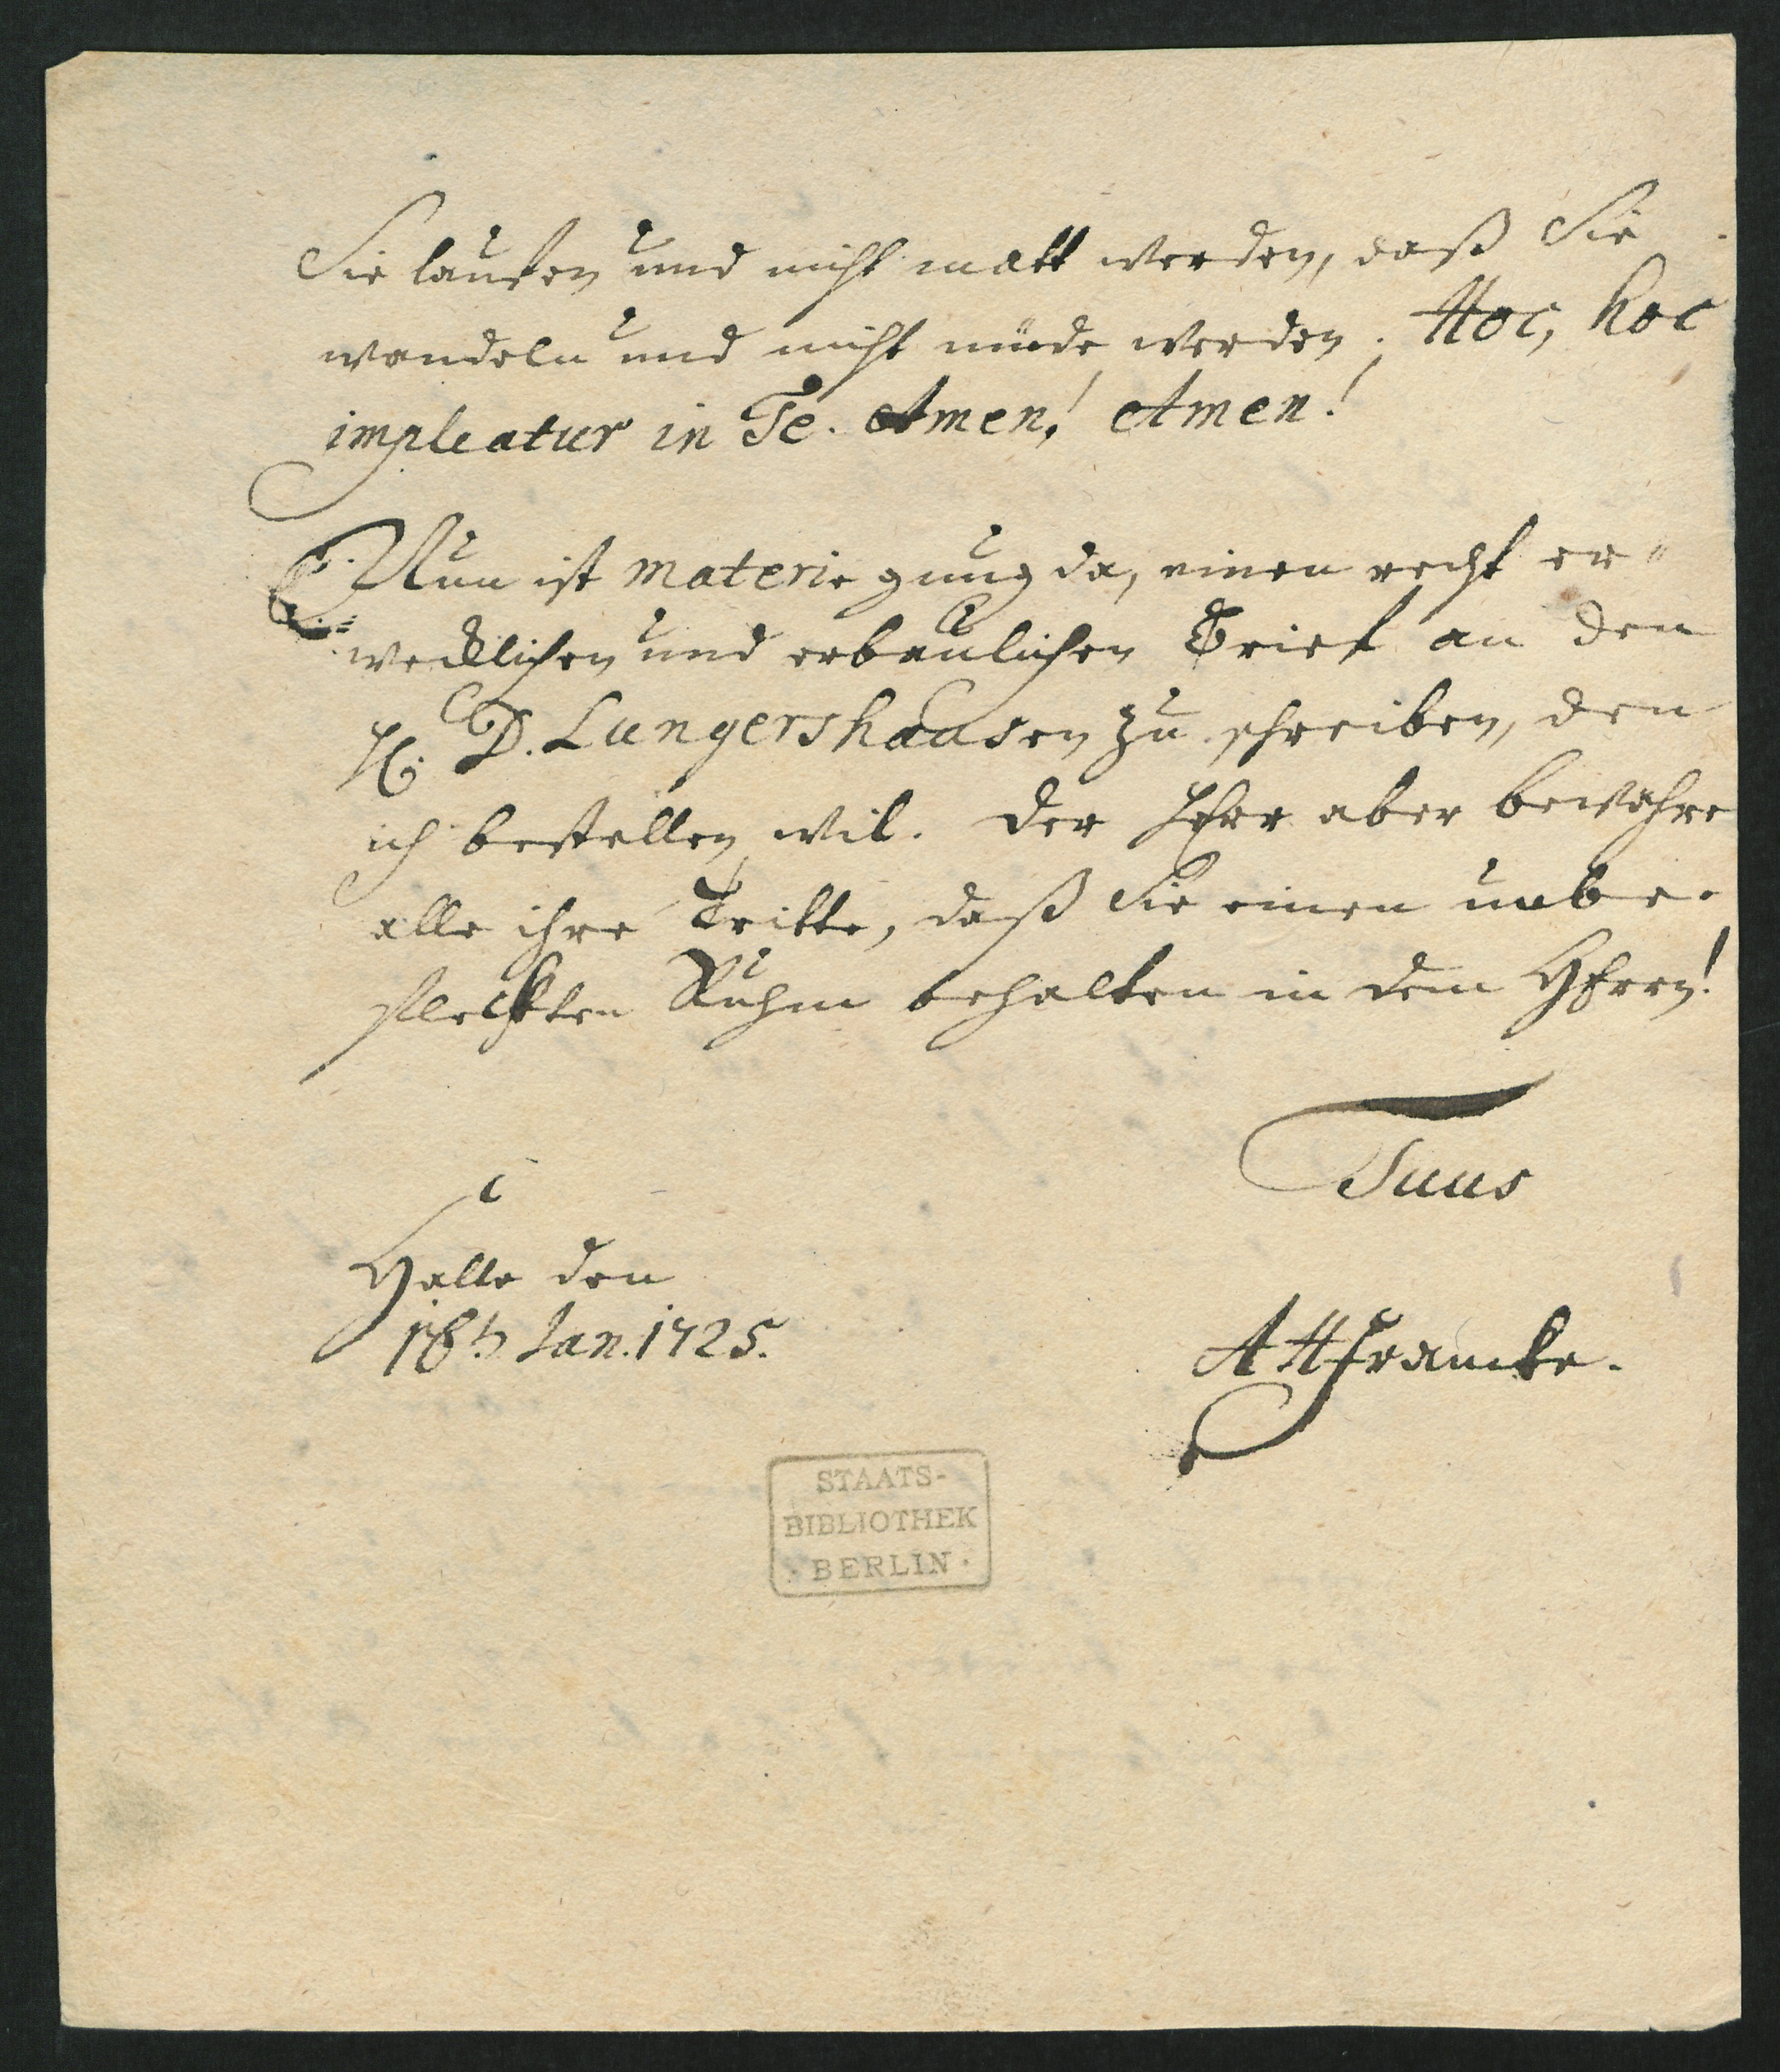 Sie lauffen und nicht matt werden, daß Sie
wandeln und nicht müde werden. Hoc, hoc
impleatur in Te. Amen! Amen!
Nun ist materie gnug da, einen recht er-
wecklichen und erbaulichen Brief an den
H. D. Lungershausen zu schreiben, den
ich bestellen wil. Der HErr aber bewahre
alle ihre Tritte, daß Sie einen unbe-
fleckten Ruhm behalten in dem HErrn!
Tuus
Halle den
18 Jan. 1725.
AHFrancke.
STAATS-
BIBLIOTHEK
· BERLIN ·